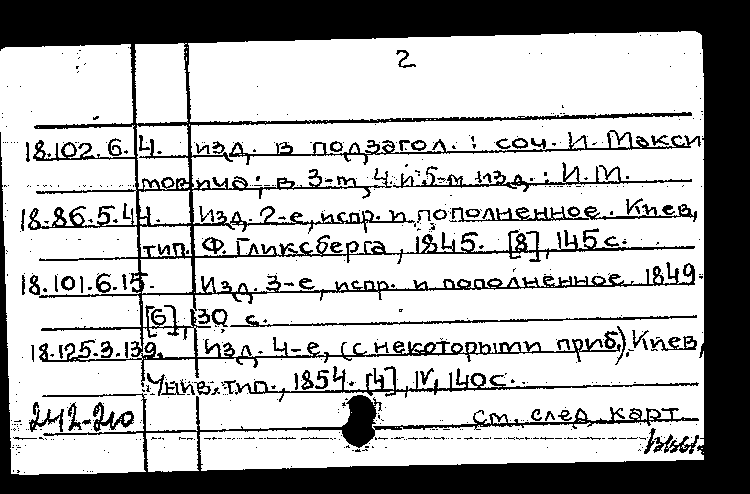 2
18.102.6.4. изд. в подзагол.: соч. И. Макси
мовича; в 3-м, 4 и 5-м изд.: И.М.
18.86.5.44. Изд. 2-е, испр. и пополненное. Киев,
тип. Ф. Гликсберга, 1845. [8], 145 с.
18.101.6.15. Изд. 3-е, испр. и пополненное 1849.
[6], 130 с.
18.125.3.139. Изд. 4-е, (с некоторыми приб.), Киев,
Унив. тип., 1854. [4], IV, 140 с.
242-210 см. след. карт